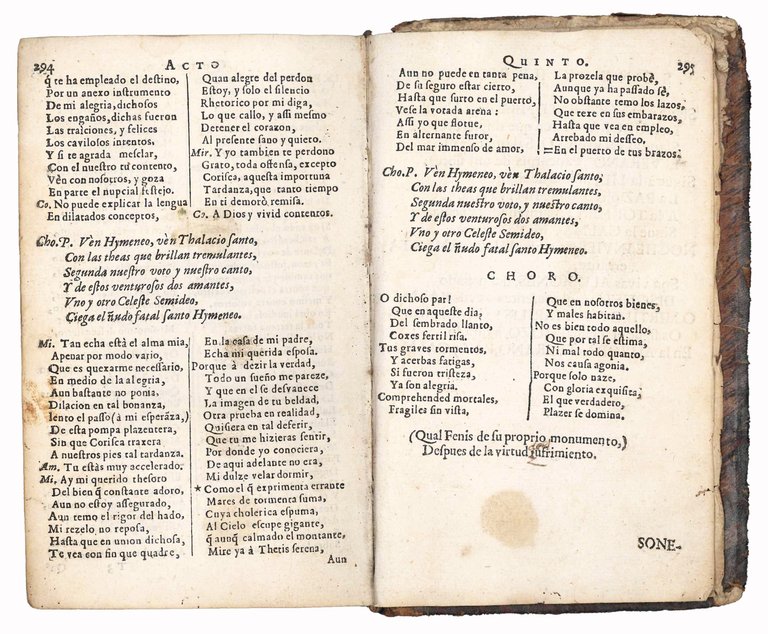 294 ACTO
q̃ te ha empleado el destino,
Por un anexo instrumento
De mi alegria, dichosos
Los engaños, dichas fueron
Las traiciones, y felices
Los cavilosos intentos,
Y si te agrada mesclar,
Con el nuestro tú contento,
Vèn con nosotros, y goza
En parte el nupcial festejo.
Co. No puede explicar la lengua
En dilatados conceptos,
Quan alegre del perdon
Estoy, y solo el silencio
Rhetorico por mi diga,
Lo que callo, y assi mesmo
Detener el corazon,
Al presente sano y quieto.
Mir. Y yo tambien te perdono
Grato, toda ostensa, excepto
Corisca, aquesta importuna
Tardanza, que tanto tiempo
En ti demorò remisa.
Co. A Dios y vivid contentos.
Cho.P. Vèn Hymeneo, vèn Thalacio santo,
Con las theas que brillan tremulantes,
Segunda nuestro voto y nuestro canto,
Y de estos venturosos dos amantes,
Vno y otro Celeste Semideo,
Ciega el ñudo fatal santo Hymeneo.
Mi. Tan echa està el alma mia,
Apenar por modo vario,
Que es quexarme necessario,
En medio de la alegria,
Aun bastante no ponia,
Dilacion en tal bonanza,
lento el passo (à mi esperãza,)
De esta pompa plazentera,
Sin que Corisca traxera
A nuestros pies tal tardanza.
Am. Tu estàs muy accelerado.
Mi. Ay mi querido thesoro
Del bien q̃ constante adoro,
Aun no estoy assegurado,
Aun temo el rigor del hado,
Mi rezelo no reposa,
Hasta que en union dichosa,
Te vea con fin que quadre,
En la casa de mi padre,
Echa mi querida esposa.
Porque à dezir la verdad,
Todo un sueño me pareze,
Y que en el se desvaneze
La imagen de tu beldad,
Otra prueba en realidad,
Quisiera en tal deferir,
Que tu me hizieras sentir,
Por donde yo conociera,
De aqui adelante no era,
Mi dulze velar dormir,
* Como el q̃ exprimenta errante
Mares de tormenta suma,
Cuya cholerica espuma,
Al Cielo escupe gigante,
q̃ aunq̃ calmado el montante,
Mire ya à Thetis serena,
Aun
QUINTO. 295
Aun no puede en tanta pena,
De su seguro estar cierto,
Hasta que surto en el puerto,
Vese la votada arena:
Assi yo que flotue,
En alternante furor,
Del mar immenso de amor,
La prozela que probè,
Aunque ya ha passado sè,
No obstante temo los lazos,
Que texe en sus embarazos,
Hasta que vea en empleo,
Arrebado mi desseo,
=En el puerto de tus brazos:
Cho.P. Vèn Hymeneo, vèn Thalacio santo,
Con las theas que brillan tremulantes,
Segunda nuestro voto, y nuestro canto,
Y de estos venturosos dos amantes,
Vno y otro Celeste Semideo,
Ciega el ñudo fatal santo Hymeneo.
CHORO.
O dichoso par!
Que en aqueste dia,
Del sembrado llanto,
Coxes fertil risa.
Tus graves tormentos,
Y acerbas fatigas,
Si fueron tristeza,
Ya son alegria.
Comprehended mortales,
Fragiles sin vista,
Que en nosotros bienes,
Y males habitan.
No es bien todo aquello,
Que por tal se estima,
Ni mal todo quanto,
Nos causa agonia.
Porque solo naze,
Con gloria exquisita,
El que verdadero,
Plazer se domina.
(Qual Fenis de su proprio monumento,)
Despues de la virtud sufrimiento.
SONE-